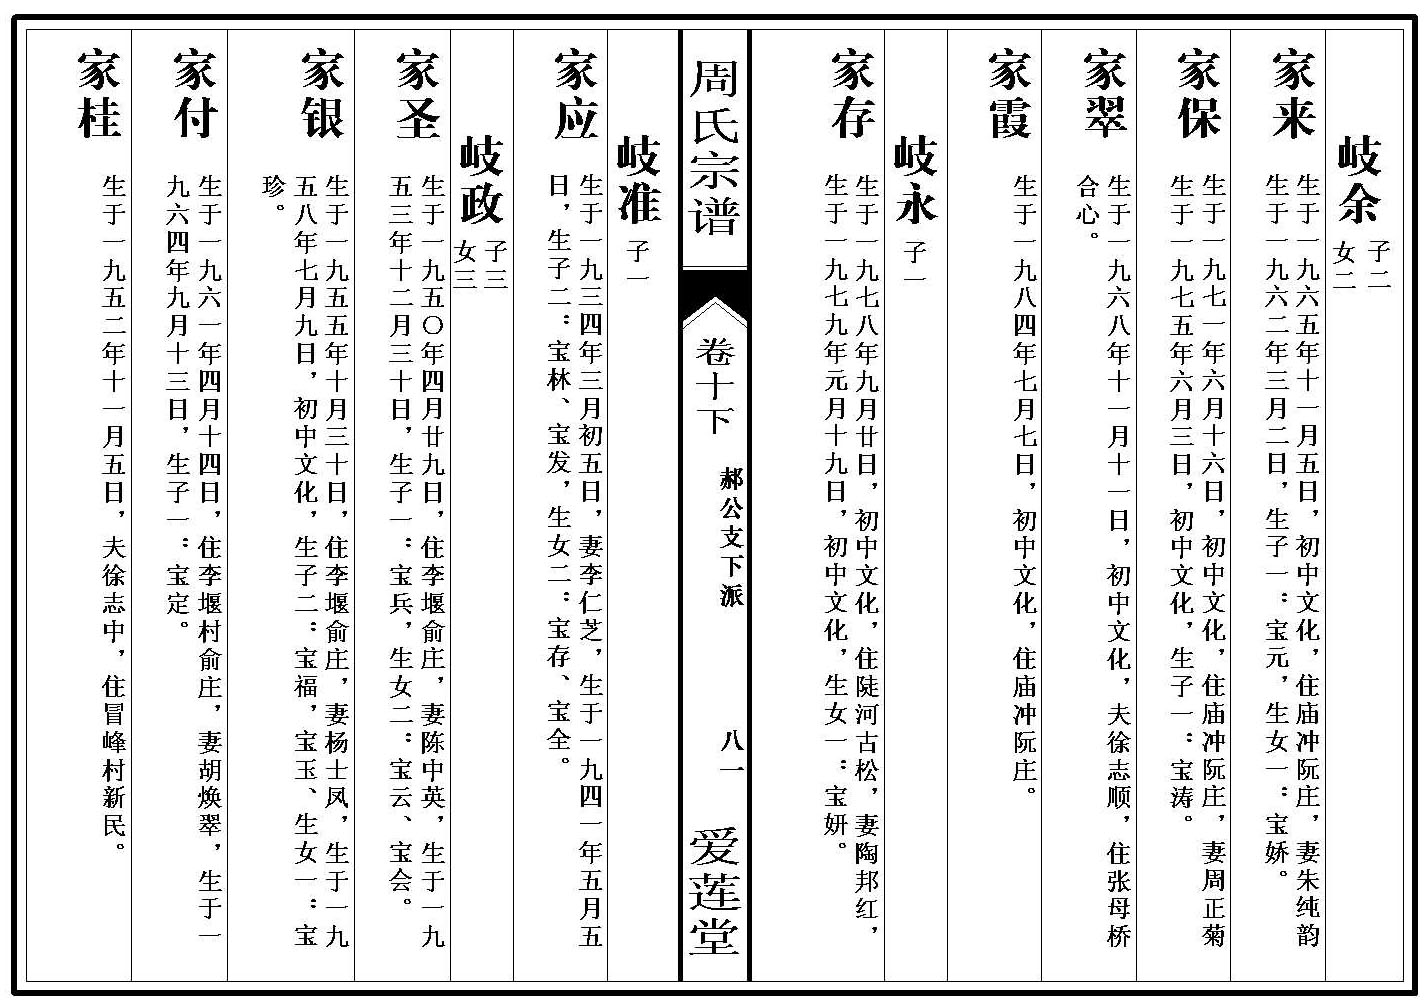 岐余
子二
女二
家来
生于一九六五年十一月五日，初中文化，住庙冲阮庄，妻朱纯韵
生于一九六二年三月二日，生子一：宝元，生女一：宝娇。
家保
生于一九七一年六月十六日，初中文化，住庙冲阮庄，妻周正菊
生于一九七五年六月三日，初中文化，生子一：宝涛。
家翠
生于一九六八年十一月十一日，初中文化，夫徐志顺，住张母桥
合心。
家霞
生于一九八四年七月七日，初中文化，住庙冲阮庄。
岐永
子一
家存
生于一九七八年九月廿日，初中文化，住陡河古松，妻陶邦红，
生于一九七九年元月十九日，初中文化，生女一：宝妍。
周氏宗谱
卷十下
郝公支下派
八一
爱莲堂
岐准
子一
家应
生于一九三四年三月初五日，妻李仁芝，生于一九四一年五月五
日，生子二：宝林、宝发，生女二：宝存、宝全。
岐政
子三
女三
家圣
生于一九五〇年四月廿九日，住李堰俞庄，妻陈中英，生于一九
五三年十二月三十日，生子一：宝兵，生女二：宝云、宝会。
家银
生于一九五五年十月三十日，住李堰俞庄，妻杨士凤，生于一九
五八年七月九日，初中文化，生子二：宝福，宝玉、生女一：宝
珍。
家付
生于一九六一年四月十四日，住李堰村俞庄，妻胡焕翠，生于一
九六四年九月十三日，生子一：宝定。
家桂
生于一九五二年十一月五日，夫徐志中，住冒峰村新民。